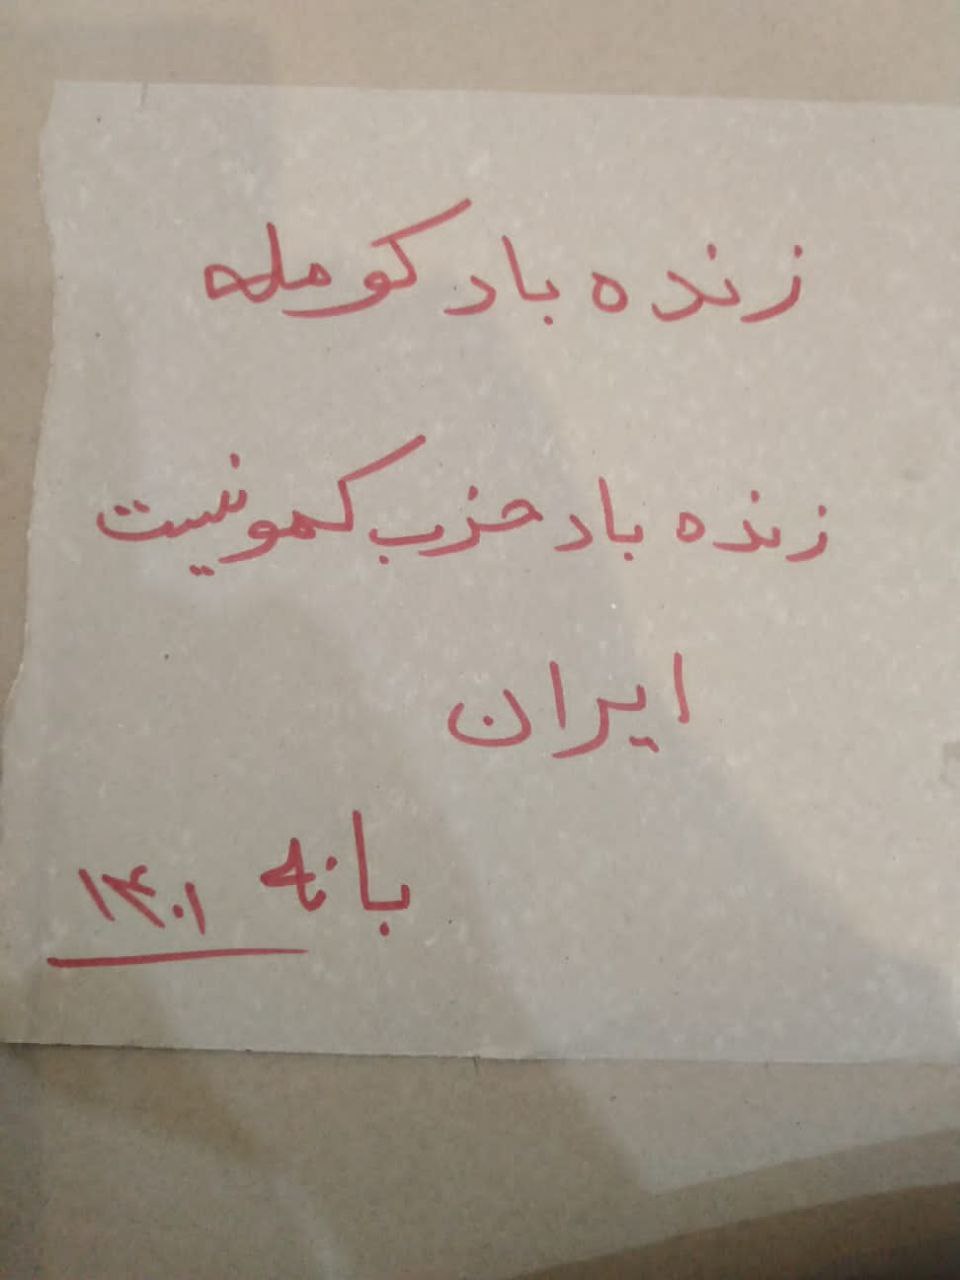 زنده باد کومله
زنده باد حزب کمونیست
ایران
بانه ۱۴۰۱